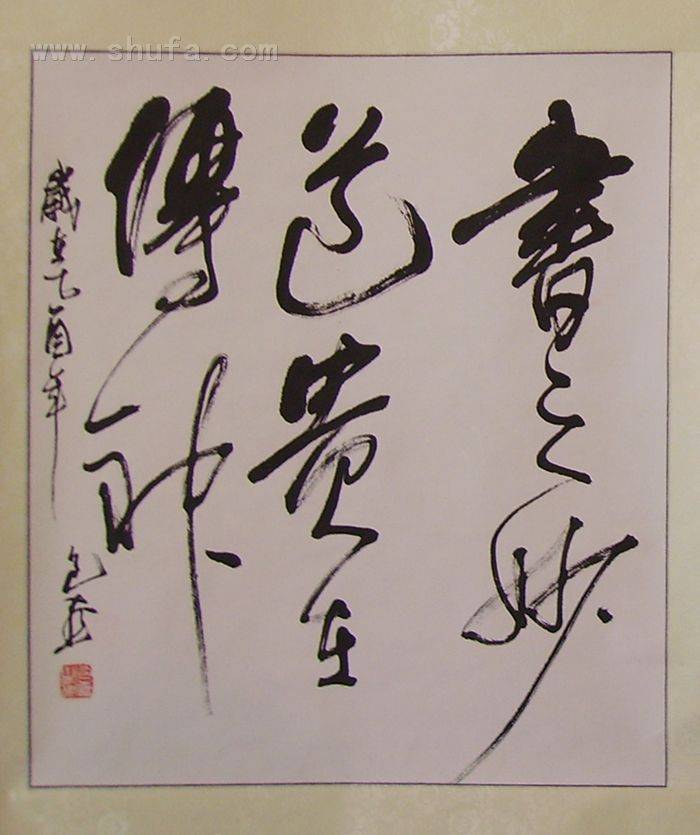 書之妙
道貴在
傳神
歲在乙酉年
www.shufa.com